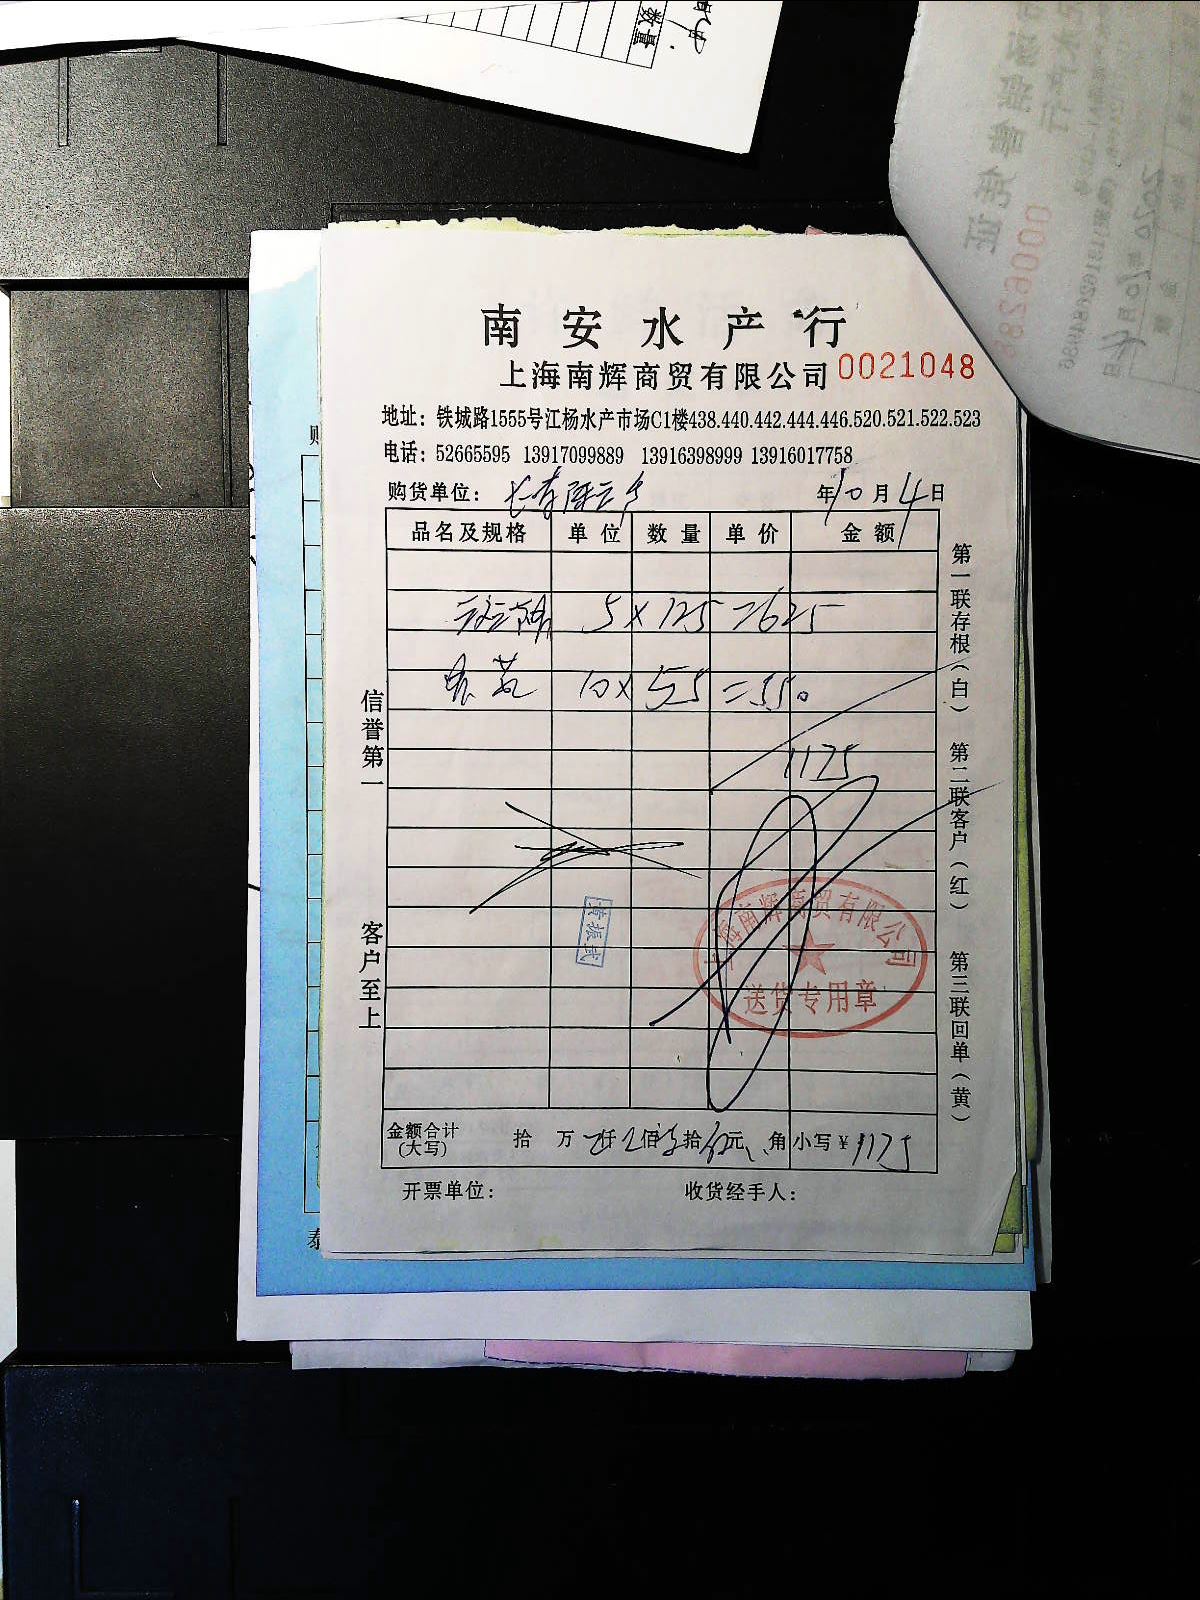 数量
南安水产行
上海南辉商贸有限公司 0021048
地址：铁城路1555号江杨水产市场C1楼438.440.442.444.446.520.521.522.523
电话：52665595 13917099889 13916398999 13916017758
购货单位： 年10月4日
品名及规格 单位 数量 单价 金额
5×125=625
10×55=550
1175
信誉第一
客户至上
第一联存根（白）
第二联客户（红）
第三联回单（黄）
上海南辉商贸有限公司
送货专用章
黄振武
金额合计（大写） 拾 万 仟 佰 拾 元 角 小写￥1175
开票单位： 收货经手人：